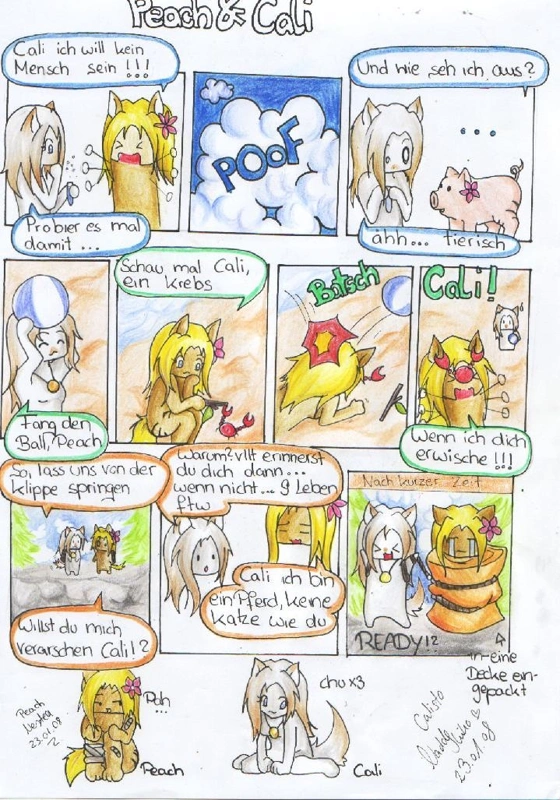 Peach & Cali
Cali ich will kein
Mensch sein!!!
Probier es mal
damit...
POOF
Und wie seh ich aus?
...
ähh... tierisch
Fang den
Ball, Peach
Schau mal Cali,
ein krebs
Batsch
Cali!
Wenn ich dich
erwische!!!
So, lass uns von der
klippe springen
Willst du mich
verarschen Cali!?
Warum? vllt erinnerst
du dich dann...
wenn nicht... 9 Leben
ftw
Cali ich bin
ein Pferd, keine
katze wie du
Nach kurzer Zeit
READY!?
in eine
Decke ein-
gepackt
Peach
23.01.08
Pöh
...
Peach
chu x3
Cali
Calisto
23.01.08